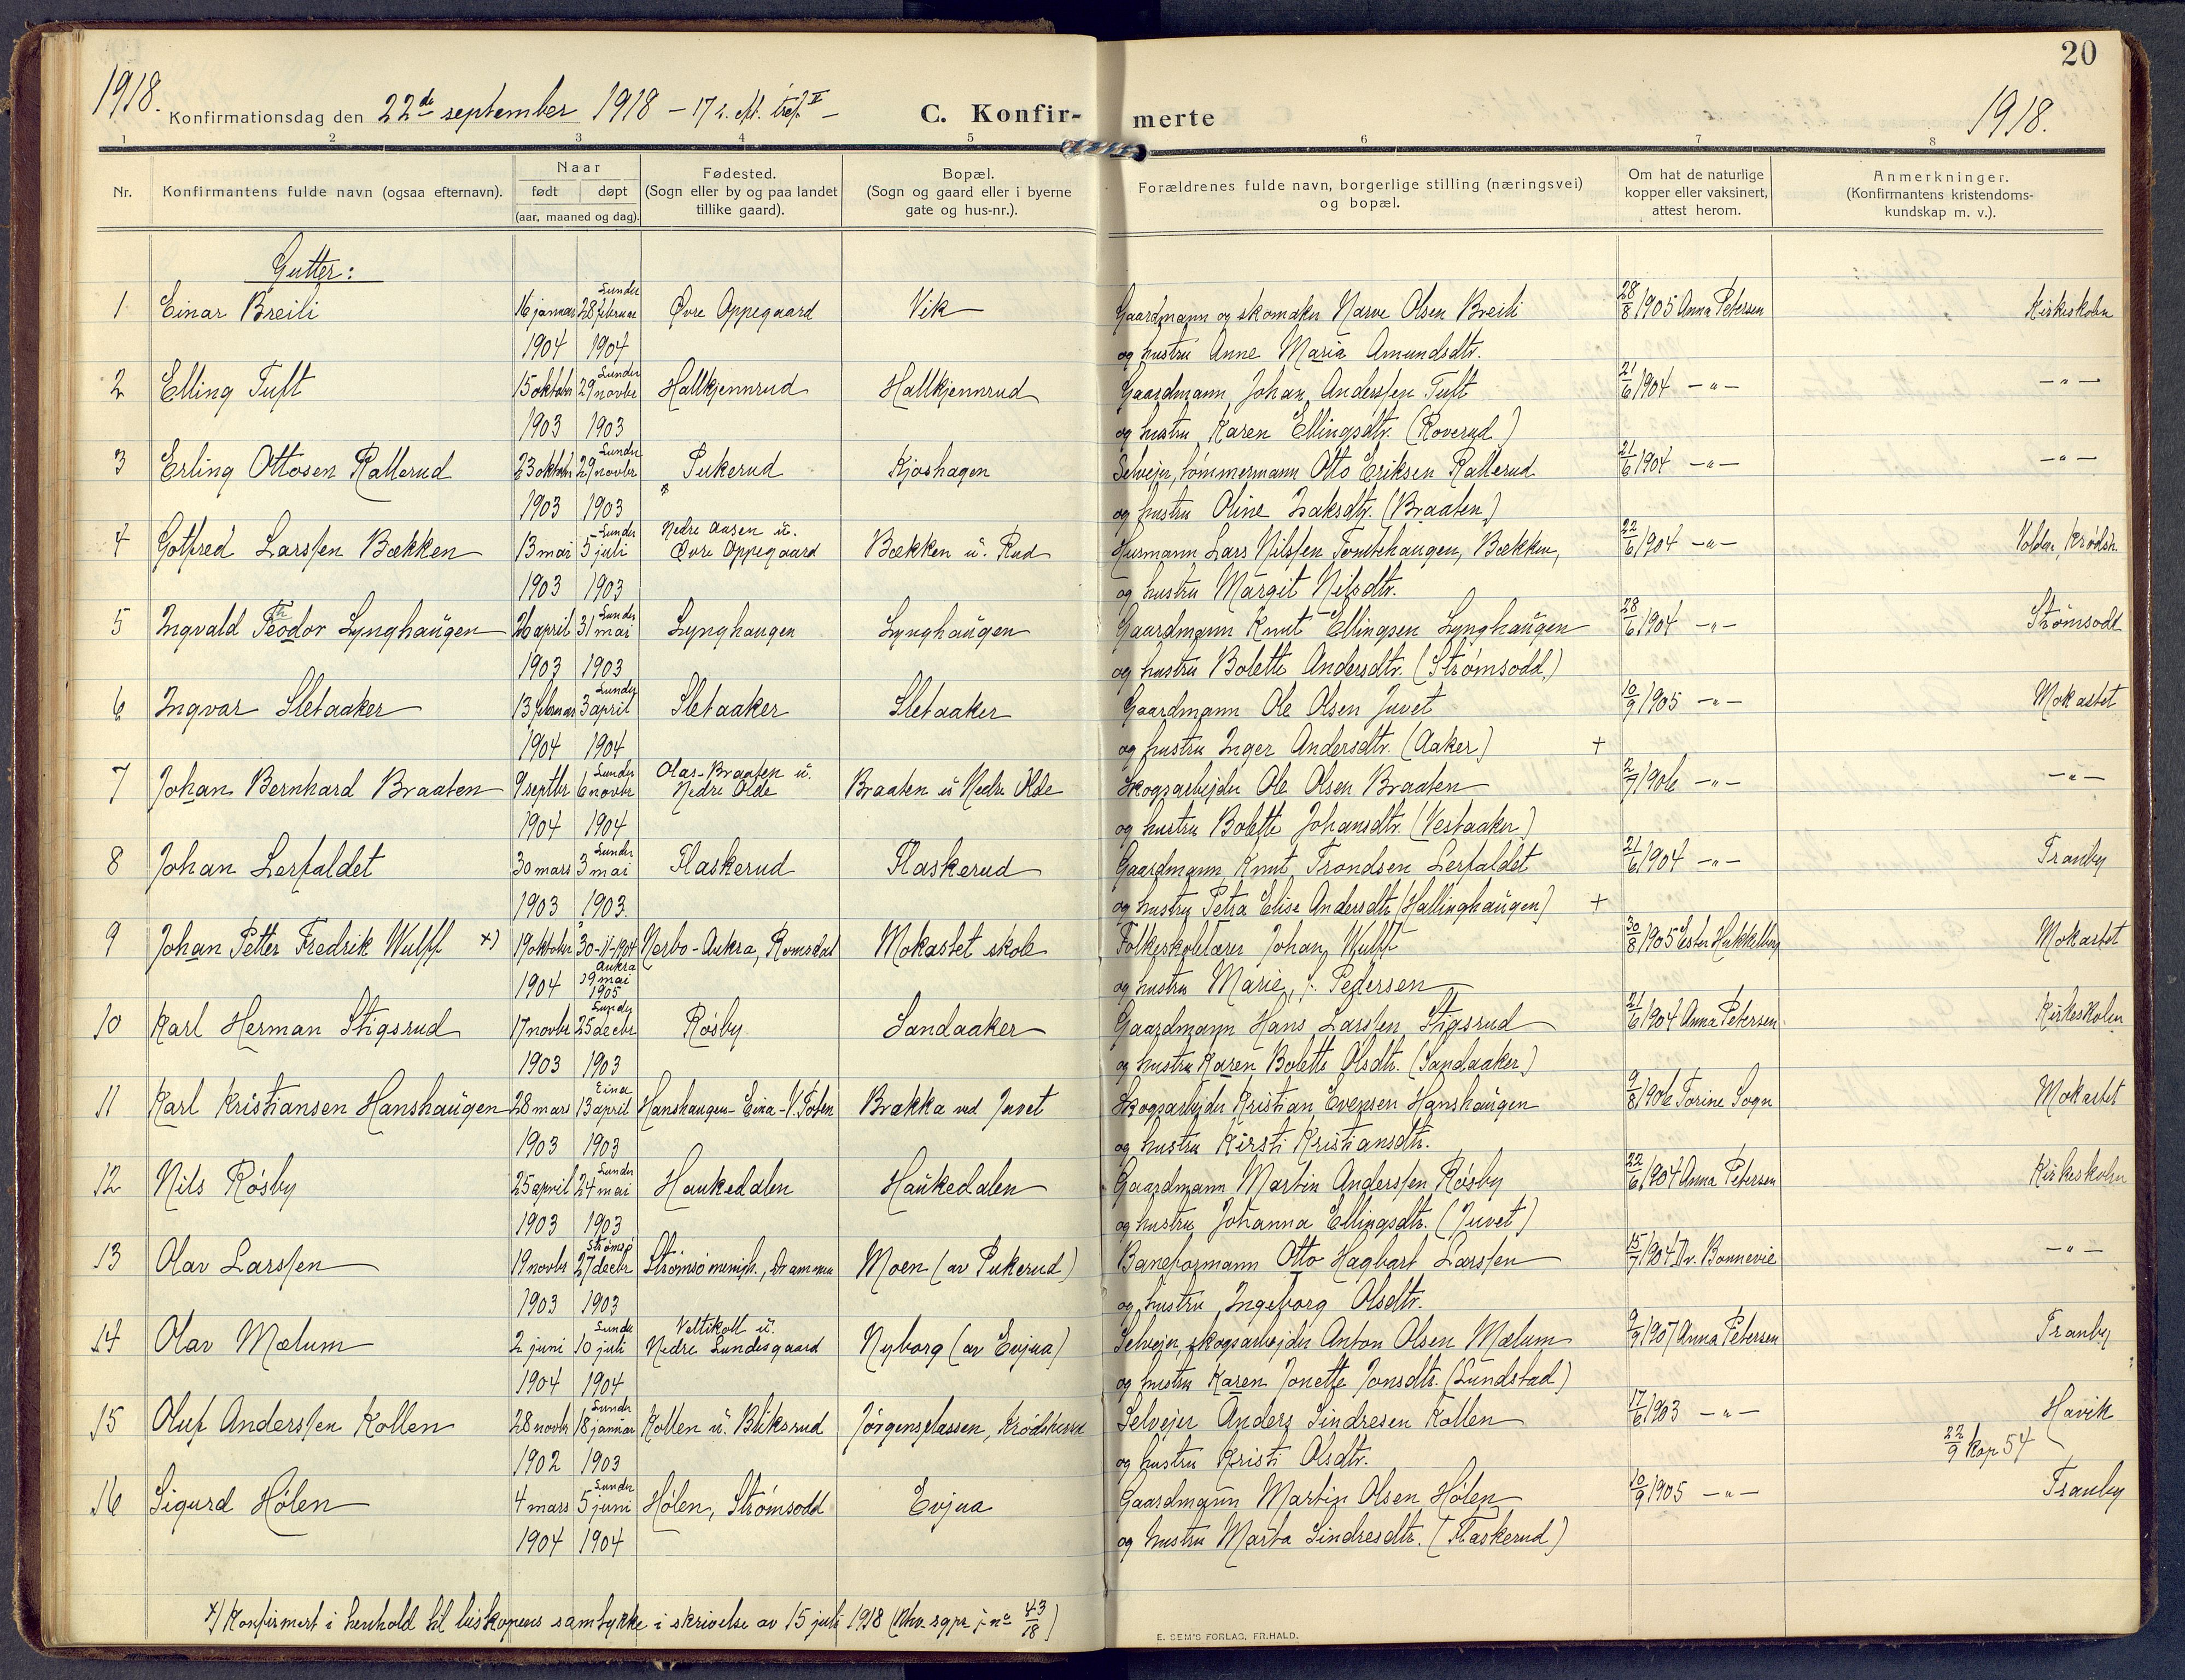 20
1918.
Konfirmationsdag den 22de september 1918 - 17 s. eft. tref. II -
C. Konfir-
merte
1918.
1 2 3 4 5 6 7 8
Nr.
Konfirmantens fulde navn (ogsaa efternavn).
Naar
født døpt
(aar, maaned og dag).
Fødested.
(Sogn eller by og paa landet
tillike gaard).
Bopæl.
(Sogn og gaard eller i byerne
gate og hus-nr.).
Forældrenes fulde navn, borgerlige stilling (næringsvei)
og bopæl.
Om hat de naturlige
kopper eller vaksinert,
attest herom.
Anmerkninger.
(Konfirmantens kristendoms-
kundskap m. v.).
Gutter:
Lunder
1 Einar Breili 16 januar 28 februar Øvre Oppegaard Vik Gaardmann og skomaker Narve Olsen Breili 28/8 1905 Anna Petersen Kirkeskolen
1904 1904 og hustru Anne Maria Amundsdtr.
Lunder
2 Elling Tuft 15 oktober 29 novbr Hallkjennrud Hallkjennrud Gaardmann Johan Anderssen Tuft 21/6 1904 -"- -"-
1903 1903 og hustru Karen Ellingsdtr. (Roverud)
Lunder
3 Erling Ottosen Rallerud 23 oktober 29 novbr Pukerud Kjoshagen Selveier, tømmermann Otto Eriksen Rallerud 21/6 1904 -"- -"-
1903 1903 og hustru Oline Isaksdtr. (Braaten)
Lunder Nedre Aasen u.
4 Gotfred Larssen Bækken 13 mai 5 juli Øvre Oppegaard Bækken u. Rud Husmann Lars Nilssen Tomtehaugen, Bækken, 22/6 1904 -"- Volden, Krødsh.
1903 1903 og hustru Margit Nilsdtr.
Lunder
5 Ingvald Theodor Lynghaugen 26 april 31 mai Lynghaugen Lynghaugen Gaardmann Knut Ellingsen Lynghaugen 28/6 1904 -"- Strømsodd
1903 1903 og hustru Bolette Andersdtr. (Strømsodd)
Lunder
6 Ingvar Sletaaker 13 februar 3 april Sletaaker Sletaaker Gaardmann Ole Olsen Juvet 10/9 1905 -"- Mokastet
1904 1904 og hustru Inger Andersdtr. (Aaker) +
Lunder Olas-Braaten u.
7 Johan Bernhard Braaten 9 septbr 6 novbr Nedre Olde Braaten u Nedre Olde Skogsarbejder Ole Olsen Braaten 2/7 1906 -"- -"-
1904 1904 og hustru Bolette Johansdtr. (Vestaaker)
Lunder
8 Johan Lerfaldet 30 mars 3 mai Flaskerud Flaskerud Gaardmann Knut Trondsen Lerfaldet 21/6 1904 -"- Tranby
1903 1903. og hustru Petra Elise Andersdtr. (Hallinghaugen) +
9 Johan Petter Fredrik Wulff x) 19 oktober 30-11-1904 Nerbo-Aukra, Romsdal Mokastet skole Folkeskolelærer Johan Wulff 30/8 1905 Ester Hakkelberg Mokastet
Aukra
1904 19 mai 1905 og hustru Marie, f. Pedersen
Lunder
10 Karl Herman Stigsrud 17 novbr 25 decbr Røsby Sandaaker Gaardmann Hans Larssen Stigsrud 21/6 1904 Anna Petersen Kirkeskolen
1903 1903 og hustru Karen Bolette Olsdtr. (Sandaaker)
Eina
11 Karl Kristiansen Hanshaugen 28 mars 13 april Hanshaugen-Eina-V. Toten Brakka ved Juvet Skogsarbejder Kristian Evensen Hanshaugen 9/8 1906 Torine Sogn Mokastet
1903 1903 og hustru Kirsti Kristiansdtr.
Lunder
12 Nils Røsby 25 april 24 mai Haukedalen Haukedalen Gaardmann Martin Anderssen Røsby 22/6 1904 Anna Petersen Kirkeskolen
1903 1903 og hustru Johanna Ellingsdtr. (Juvet)
Strømsø
13 Olav Larssen 19 novbr 27 decbr Strømsø menigh., Drammen Moen (av Pukerud) Baneformann Otto Hagbart Larssen 15/7 1904 Dr. Bonnevie -"-
1903 1903 og hustru Ingeborg Olsdtr.
Lunder Veltikoll u.
14 Olav Mælum 2 juni 10 juli Nedre Lundesgaard Nyborg (av Evjua) Selveier, skogsarbejder Anton Olsen Mælum 9/9 1907 Anna Petersen Tranby
1904 1904 og hustru Karen Jonette Jonsdtr. (Lundstad)
Lunder
15 Oluf Anderssen Kollen 28 novbr 18 januar Kollen u. Bliksrud Jørgensplassen, Krødsherad Selveier Anders Sindresen Kollen 17/6 1903 -"- Havik
1902 1903 og hustru Kristi Olsdtr. 22/9 kap 54
Lunder
16 Sigurd Hølen 4 mars 5 juni Hølen, Strømsodd Evjua Gaardmann Martin Olsen Hølen 10/9 1905 -"- Tranby
1904 1904 og hustru Marta Sindresdtr. (Flaskerud)
x) Konfirmert i henhold til biskopens samtykke i skrivelse av 15 juli 1918 (Nhv. sgpr. j-no 43/18)
E. SEM'S FORLAG, FR.HALD.